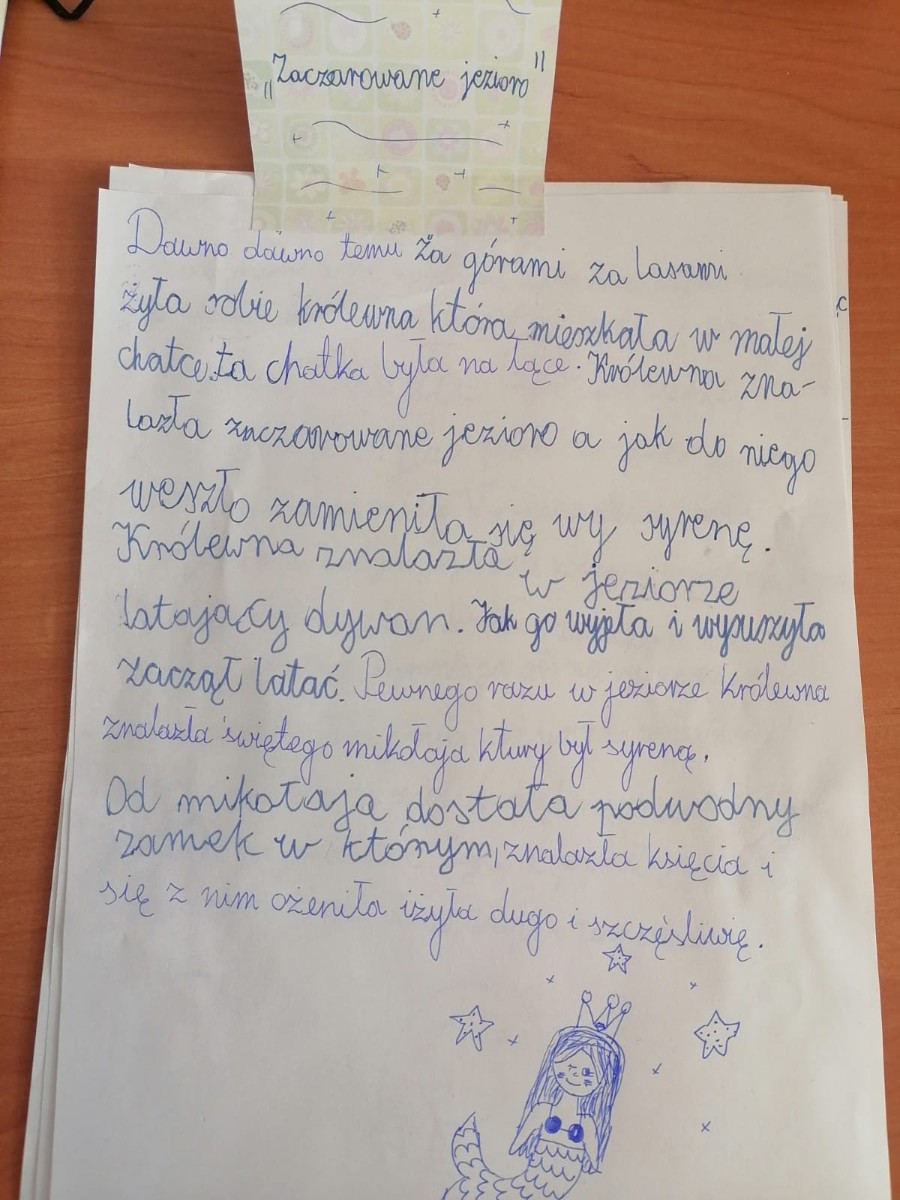 „Zaczarowane jezioro"
Dawno dawno temu Za górami za lasami
żyła sobie królewna która mieszkała w małej
chatce, ta chatka była na łące. Królewna zna-
lazła znczarowane jezioro a jak do niego
weszło zamieniła się wy syrenę.
Królewna znalazła w jeziorze
latający dywan. Jak go wyjęła i wysuszyła
zaczął latać. Pewnego razu w jeziorze Królewna
znalazła świętego mikołaja ktury był syreną.
Od mikołaja dostała podwodny
zamek w którym, znalazła księcia i
się z nim ożeniła iżyła dugo i szczęśliwię.